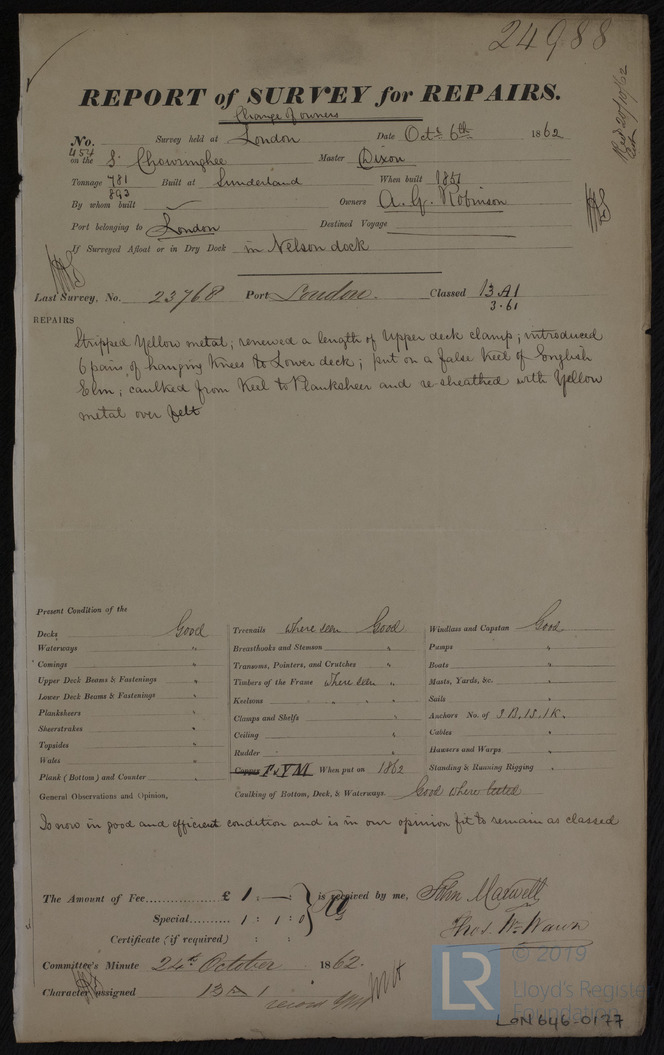 24988
REPORT of SURVEY for REPAIRS.
Change of owners
No. 454 Survey held at London Date Octr 6th 1862
on the S. Chowringhee Master Dixon
Tonnage 781 Built at Sunderland When built 1851
893
By whom built Owners A. G. Robinson
Port belonging to London Destined Voyage
If Surveyed Afloat or in Dry Dock in Nelson dock
Last Survey, No. 23768 Port London. Classed 13 A1
3.61
REPAIRS
Stripped Yellow metal; renewed a length of Upper deck clamp; introduced
6 pairs of hanging Knees to Lower deck; put on a false Keel of English
Elm; caulked from Keel to Planksheer and re-sheathed with Yellow
metal over felt
Present Condition of the
Decks Good
Waterways "
Comings "
Upper Deck Beams & Fastenings "
Lower Deck Beams & Fastenings "
Planksheers "
Sheerstrakes "
Topsides "
Wales "
Plank (Bottom) and Counter "
Treenails where seen Good
Breasthooks and Stemson "
Transoms, Pointers, and Crutches "
Timbers of the Frame where seen "
Keelsons " " "
Clamps and Shelfs "
Ceiling "
Rudder "
Copper F & YM When put on 1862
Caulking of Bottom, Deck, & Waterways. Good where tested
Windlass and Capstan Good
Pumps "
Boats "
Masts, Yards, &c. "
Sails "
Anchors No. of 3 B, 1 S, 1 K.
Cables "
Hawsers and Warps "
Standing & Running Rigging "
General Observations and Opinion,
Is now in good and efficient condition and is in our opinion fit to remain as classed
The Amount of Fee £ 1 : — : is received by me, John Maxwell
Special 1 : 1 : 0 Thos. Wm Wawn
Certificate (if required) : :
Committee's Minute 24th October 1862.
Character assigned 13 A 1
© 2019
LR
Lloyd's Register
Foundation
LON646-0177